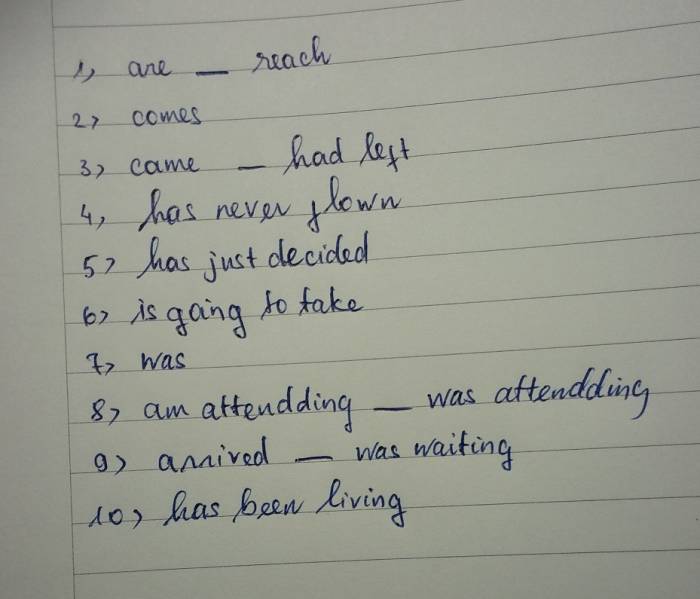 1, are — reach
2> comes
3> came — had left
4, has never flown
5> has just decided
6> is going to take
7> was
8> am attendding — was attendding
9> arrived — was waiting
10> has been living